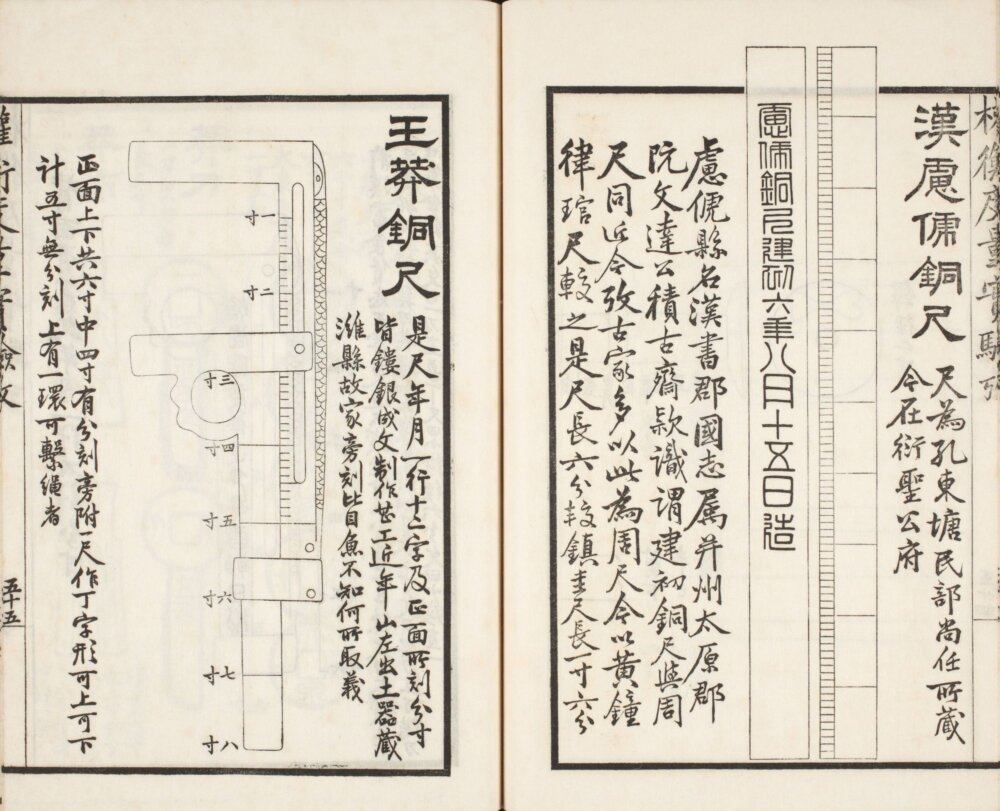 權衡度量實驗攷
漢慮俿銅尺
尺為孔東塘民部尚任所藏
今在衍聖公府
慮俿銅尺建初六年八月十五日造
慮俿縣名漢書郡國志属并州太原郡
阮文達公積古齋款識謂建初銅尺與周
尺同近今攷古家多以此為周尺今以黃鐘
律琯尺較之是尺長六分較鎮圭尺長一寸六分
王莽銅尺
是尺年月一行十二字及正面所刻分寸
皆鏤銀成文制作甚工近年山左出土器藏
濰縣故家旁刻比目魚不知何所取義
一寸
二寸
三寸
四寸
五寸
六寸
七寸
八寸
正面上下共六寸中四寸有分刻旁附一尺作丁字形可上可下
計五寸無分刻上有一環可繫繩者
五十五